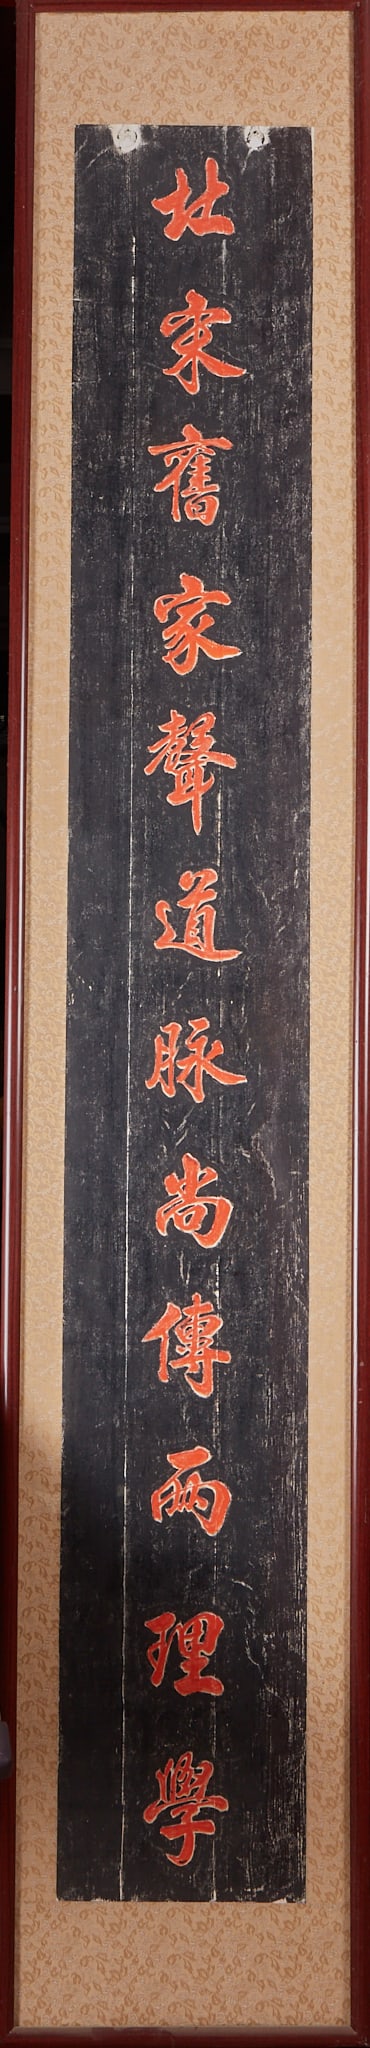 北宋舊家聲道脉尚傳兩理學